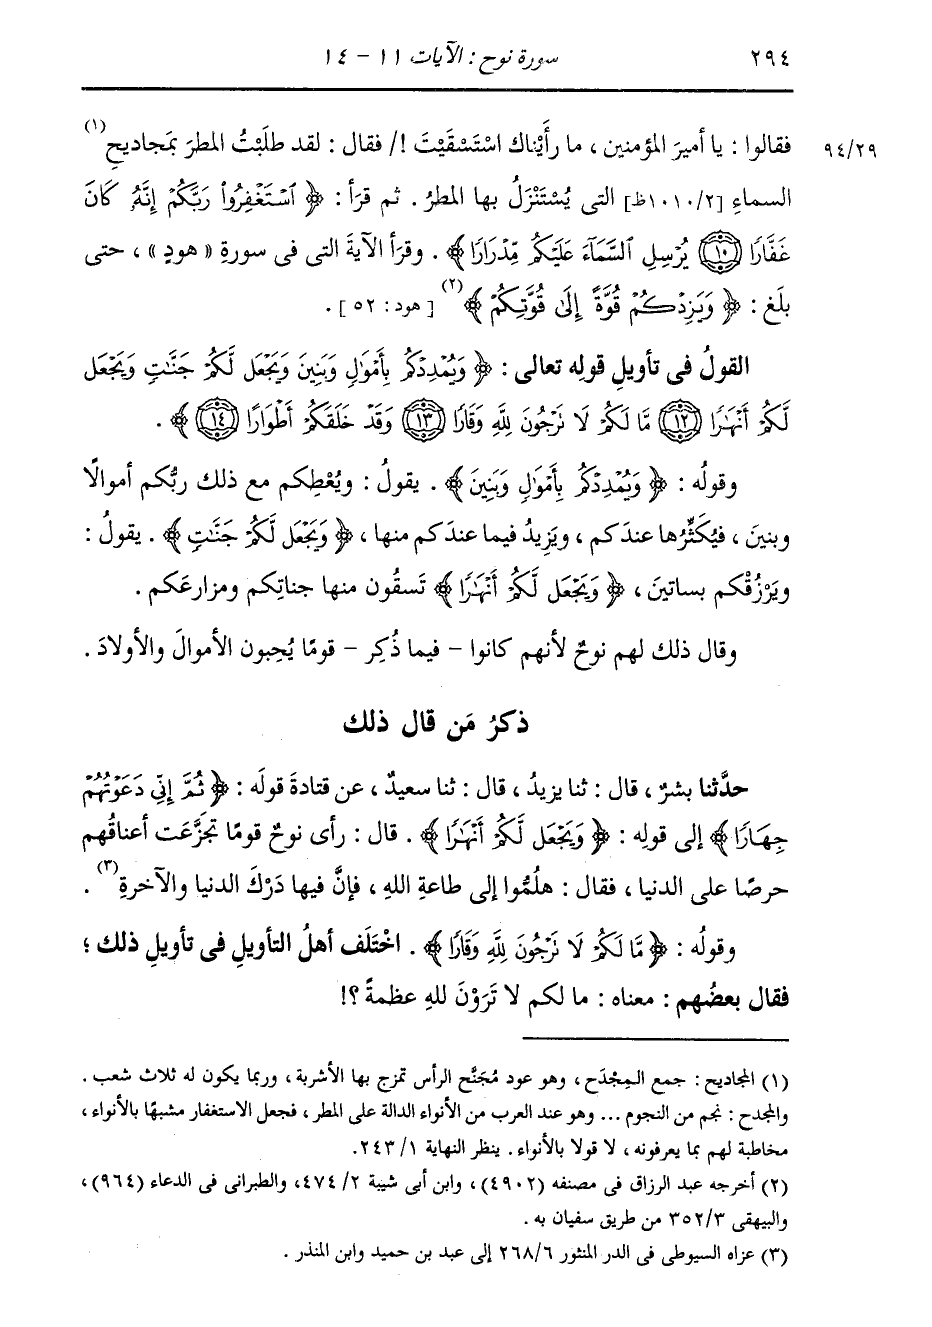 ٢٩٤ سورة نوح : الآيات ١١ - ١٤
٩٤/٢٩ فقالوا : يا أميرَ المؤمنين ، ما رأَيْناك اسْتَسْقَيْتَ !/ فقال : لقد طلَبْتُ المطرَ بمَجاديحِ(١)
السماءِ [١٠١٠/٢ظ] التى يُسْتَنْزَلُ بها المطرُ . ثم قرَأ : ﴿ ٱسْتَغْفِرُوا۟ رَبَّكُمْ إِنَّهُۥ كَانَ
غَفَّارًا ١٠ يُرْسِلِ ٱلسَّمَآءَ عَلَيْكُم مِّدْرَارًا ﴾ . وقرَأ الآيةَ التى فى سورةِ « هودٍ » ، حتى
بلَغ : ﴿ وَيَزِدْكُمْ قُوَّةً إِلَىٰ قُوَّتِكُمْ ﴾(٢) [ هود: ٥٢ ] .
القولُ فى تأويلِ قولِه تعالى : ﴿ وَيُمْدِدْكُم بِأَمْوَٰلٍ وَبَنِينَ وَيَجْعَل لَّكُمْ جَنَّٰتٍ وَيَجْعَل
لَّكُمْ أَنْهَٰرًا ١٢ مَّا لَكُمْ لَا تَرْجُونَ لِلَّهِ وَقَارًا ١٣ وَقَدْ خَلَقَكُمْ أَطْوَارًا ١٤ ﴾ .
وقولُه : ﴿ وَيُمْدِدْكُم بِأَمْوَٰلٍ وَبَنِينَ ﴾ . يقولُ : ويُعْطِكم مع ذلك ربُّكم أموالًا
وبنينَ ، فيُكَثِّرُها عندَكم ، ويَزِيدُ فيما عندَكم منها ، ﴿ وَيَجْعَل لَّكُمْ جَنَّٰتٍ ﴾ . يقولُ :
ويَرْزُقْكم بساتينَ ، ﴿ وَيَجْعَل لَّكُمْ أَنْهَٰرًا ﴾ تَسقُون منها جناتِكم ومزارعَكم .
وقال ذلك لهم نوحٌ لأنهم كانوا - فيما ذُكِر - قومًا يُحِبون الأموالَ والأولادَ .
ذكرُ مَن قال ذلك
حدَّثنا بشرٌ ، قال : ثنا يزيدُ ، قال : ثنا سعيدٌ ، عن قتادةَ قولَه : ﴿ ثُمَّ إِنِّى دَعَوْتُهُمْ
جِهَارًا ﴾ إلى قولِه : ﴿ وَيَجْعَل لَّكُمْ أَنْهَٰرًا ﴾ . قال : رأى نوحٌ قومًا تجَزَّعَت أعناقُهم
حرصًا على الدنيا ، فقال : هلُمُّوا إلى طاعةِ اللهِ ، فإنَّ فيها دَرْكَ الدنيا والآخرةِ(٣) .
وقولُه : ﴿ مَّا لَكُمْ لَا تَرْجُونَ لِلَّهِ وَقَارًا ﴾ . اخْتَلَف أهلُ التأويلِ فى تأويلِ ذلك ؛
فقال بعضُهم : معناه : ما لكم لا تَرَوْنَ للهِ عظمةً ؟!
(١) المجاديح : جمع المِجْدَح ، وهو عود مُجَنَّح الرأس تمزج بها الأشربة ، وربما يكون له ثلاث شعب .
والمجدح : نجم من النجوم ... وهو عند العرب من الأنواء الدالة على المطر ، فجعل الاستغفار مشبهًا بالأنواء ،
مخاطبة لهم بما يعرفونه ، لا قولا بالأنواء . ينظر النهاية ١/ ٢٤٣.
(٢) أخرجه عبد الرزاق فى مصنفه (٤٩٠٢) ، وابن أبى شيبة ٢/ ٤٧٤، والطبرانى فى الدعاء (٩٦٤) ،
والبيهقى ٣٥٢/٣ من طريق سفيان به .
(٣) عزاه السيوطى فى الدر المنثور ٢٦٨/٦ إلى عبد بن حميد وابن المنذر .